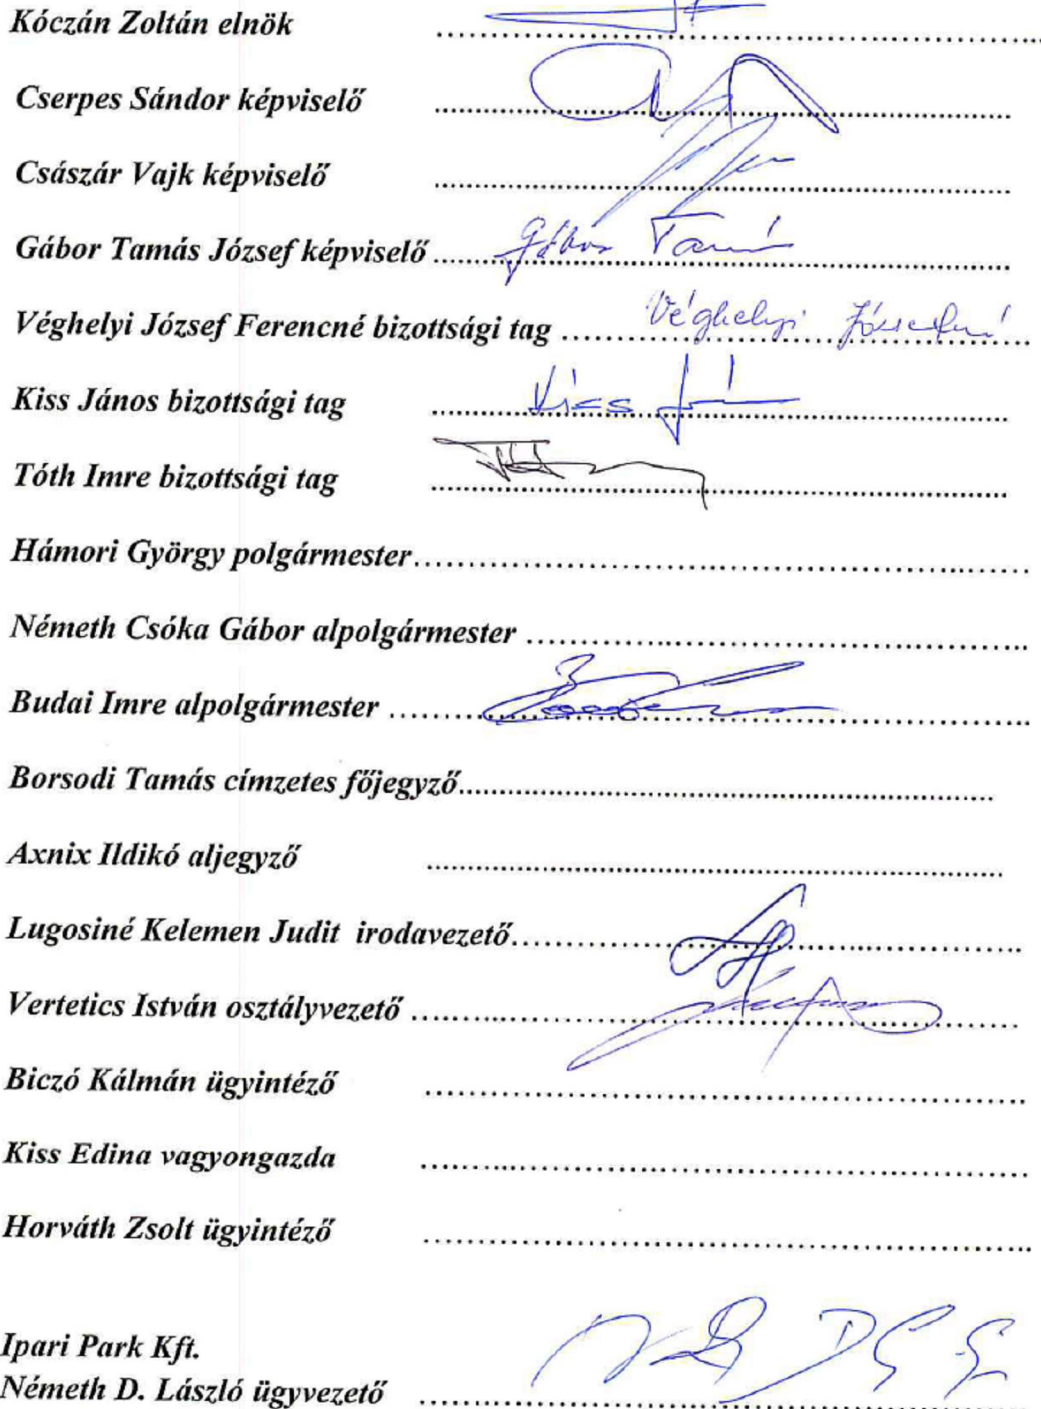 Kóczán Zoltán elnök ........................................
Cserpes Sándor képviselő ........................................
Császár Vajk képviselő ........................................
Gábor Tamás József képviselő ........................................ Gábor Tamás
Véghelyi József Ferencné bizottsági tag ........................................ Véghelyi Józsefné
Kiss János bizottsági tag ........................................ Kiss
Tóth Imre bizottsági tag ........................................
Hámori György polgármester........................................
Németh Csóka Gábor alpolgármester ........................................
Budai Imre alpolgármester ........................................
Borsodi Tamás címzetes főjegyző........................................
Axnix Ildikó aljegyző ........................................
Lugosiné Kelemen Judit irodavezető........................................
Vertetics István osztályvezető ........................................
Biczó Kálmán ügyintéző ........................................
Kiss Edina vagyongazda ........................................
Horváth Zsolt ügyintéző ........................................
Ipari Park Kft.
Németh D. László ügyvezető ........................................